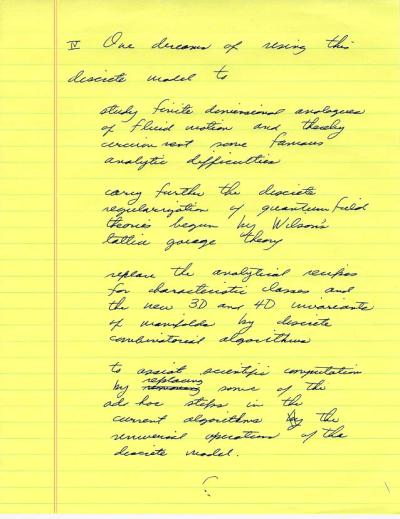 IV One dreams of using this
discrete model to
study finite dimensional analogues
of fluid motion and thereby
circumvent some famous
analytic difficulties
carry further the discrete
regularization of quantum field
theories begun by Wilson's
lattice gauge theory
replace the analytical recipes
for characteristic classes and
the new 3D and 4D invariants
of manifolds by discrete
combinatorial algorithms
to assist scientific computation
by replacing some of the
ad hoc steps in the
current algorithms by the
universal operations of the
discrete model.
?